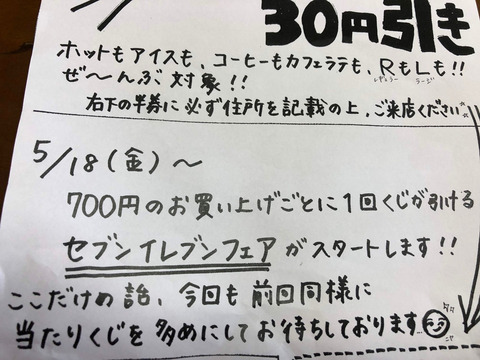 30円引き
ホットもアイスも、コーヒーもカフェラテも、RもLも!!
レギュラー ラージ
ぜ〜んぶ対象!!
右下の半券に必ず住所を記載の上、ご来店ください
5/18(金)〜
700円のお買い上げごとに1回くじが引ける
セブンイレブンフェアがスタートします!!
ここだけの話、今回も前回同様に
当たりくじを多めにしてお待ちしております